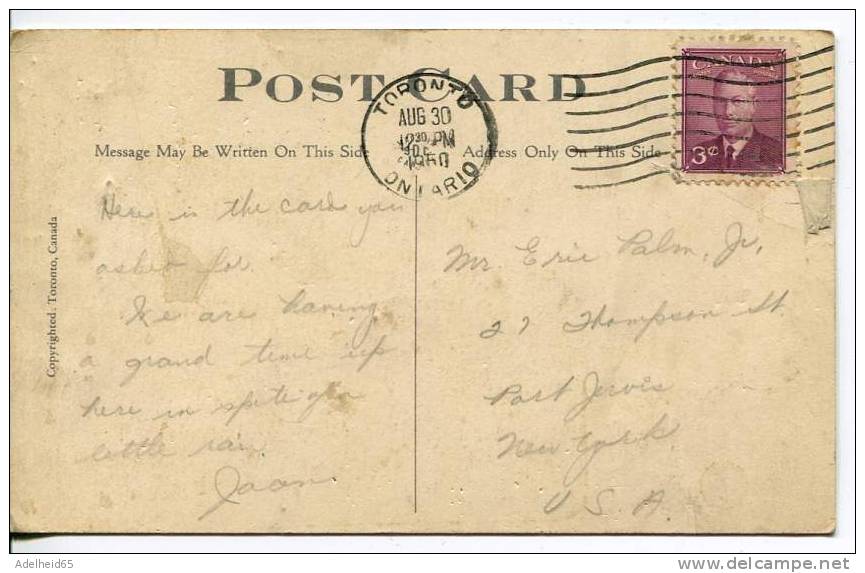 POST CARD
TORONTO
AUG 30
12 30 PM
1950
ONTARIO
CANADA
3¢
Message May Be Written On This Side
Address Only On This Side
Copyrighted. Toronto, Canada
Here is the card you
asked for.
We are having
a grand time up
here in spite of a
little rain
Joan
Mr. Eric Palm, Jr,
27 Thompson St.
Port Jervis
New York
U.S.A.
Adelheid65
delcampe.net